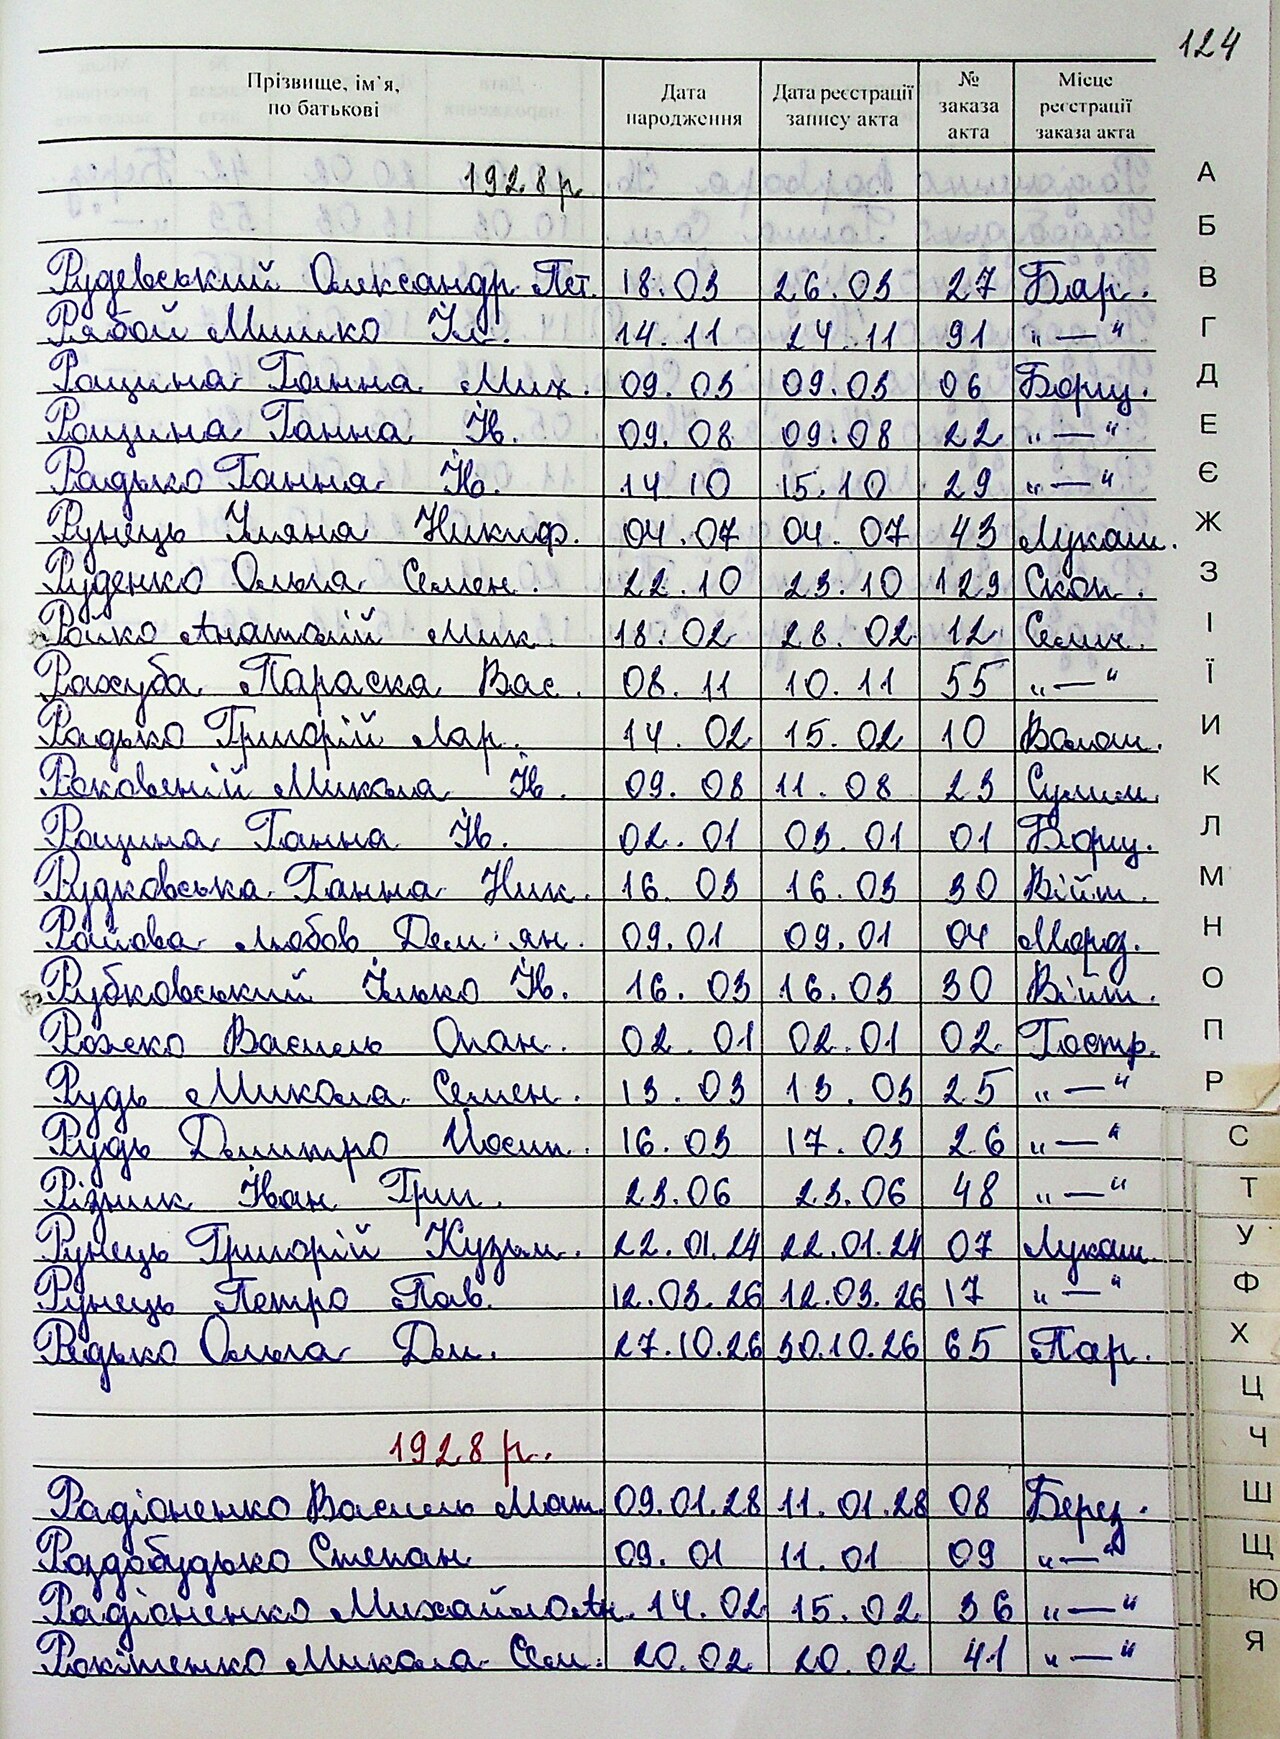 124
Прізвище, ім'я, по батькові | Дата народження | Дата реєстрації запису акта | № заказа акта | Місце реєстрації заказа акта
1928 р
Рудевський Олександр Пет. 18.03 26.03 27 Бар.
Рябой Мишко Іл. 14.11 24.11 91 „—“
Рощина Ганна Мих. 09.03 09.03 06 Борщ.
Рощина Ганна Ів. 09.08 09.08 22 „—“
Радько Ганна Ів. 14 10 15.10 29 „—“
Рунець Уляна Никиф. 04.07 04.07 43 Лукаш.
Руденко Ольга Семен. 22.10 23.10 129 Скоп.
Ройко Анатолій Мик. 18.02 28.02 12 Селич.
Рахуба Параска Вас. 08.11 10.11 55 „—“
Радько Григорій Лар. 14.02 15.02 10 Волош.
Роковеній Микола Ів. 09.08 11.08 23 Сулим.
Рощина Ганна Ів. 02.01 03.01 01 Борщ.
Рудковська Ганна Ник. 16.03 16.03 30 Війт.
Ройова Любов Дем'ян. 09.01 09.01 04 Мороз.
Рубковський Ілько Ів. 16.03 16.03 30 Війт.
Рожко Василь Опан. 02.01 02.01 02 Гостр.
Рудь Микола Семен. 13.03 13.03 25 „—“
Рудь Дмитро Йосип. 16.03 17.03 26 „—“
Різник Іван Григ. 23.06 23.06 48 „—“
Рунець Григорій Кузьм. 22.01.24 22.01.24 07 Лукаш.
Рунець Петро Пав. 12.03.26 12.03.26 17 „—“
Редько Ольга Дм. 27.10.26 30.10.26 65 Пар.
1928 р.
Радіоненко Василь Мат. 09.01.28 11.01.28 08 Берез.
Роздобудько Степан 09.01 11.01 09 „—“
Радіоненко Михайло Ан. 14.02 15.02 36 „—“
Рокітенко Микола Сем. 20.02 20.02 41 „—“
А
Б
В
Г
Д
Е
Є
Ж
З
І
Ї
И
К
Л
М
Н
О
П
Р
С
Т
У
Ф
Х
Ц
Ч
Ш
Щ
Ю
Я